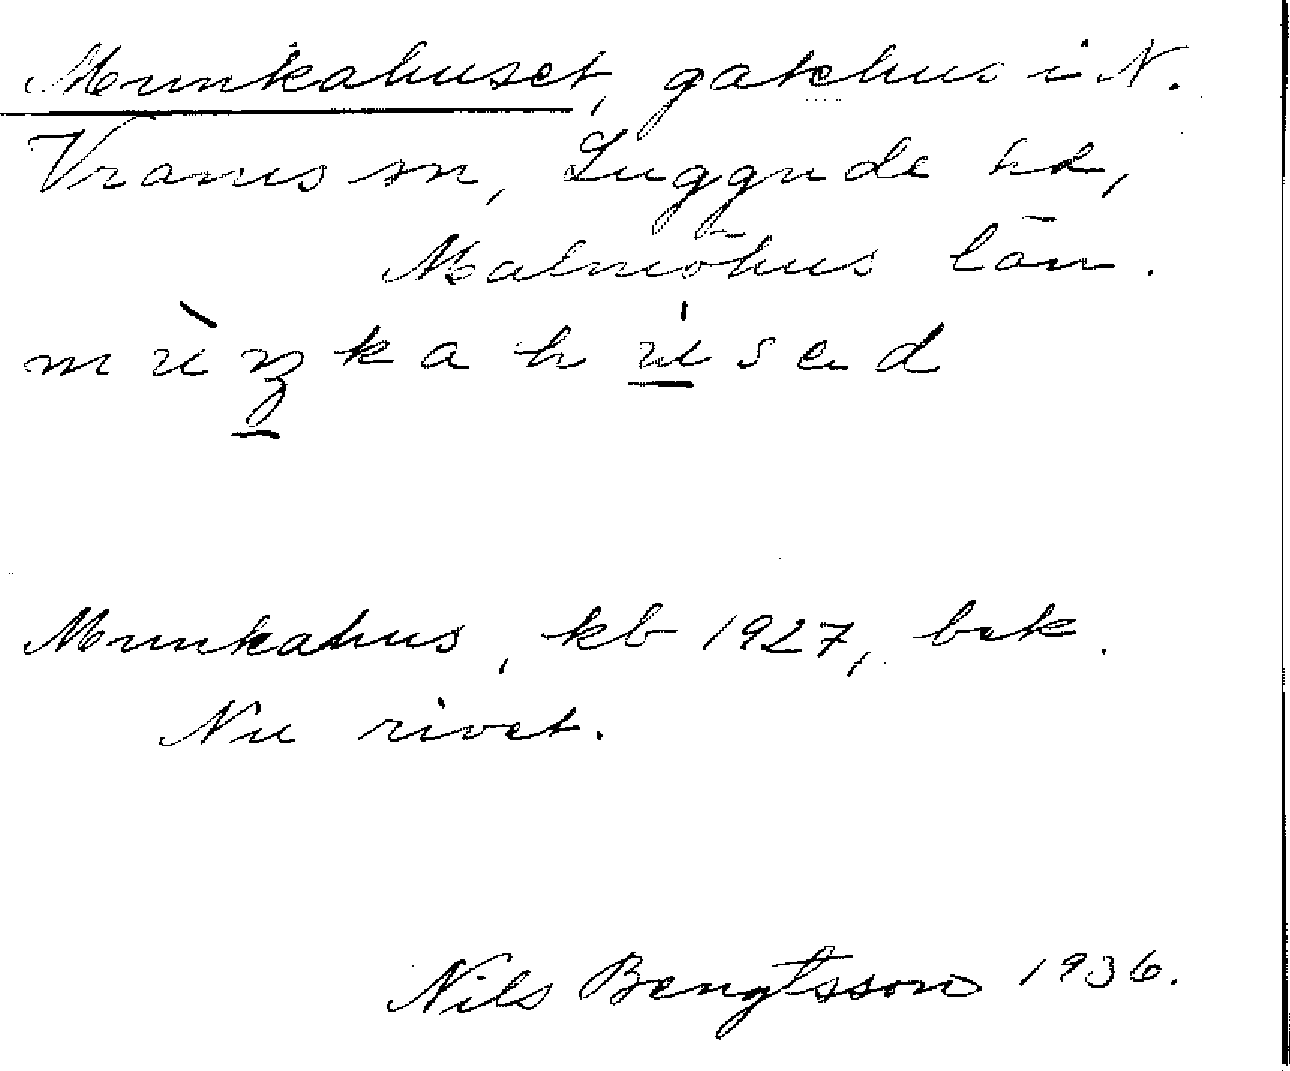 Munkahuset, gatehus i N.
Vrams sn, Luggude hd,
Malmöhus län.
mùŋkahúsəd
Munkahus, kb 1927, bek.
Nu rivet.
Nils Bengtsson 1936.